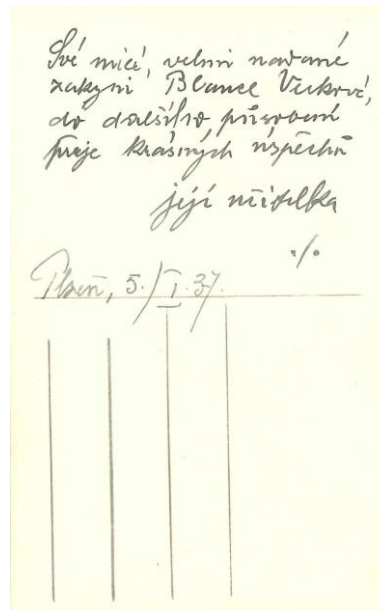 Své milé, velmi nadané
žákyni Blance Vackové,
do dalšího působení
přeje krásných úspěchů
její učitelka
./.
Plzeň, 5./I.37.